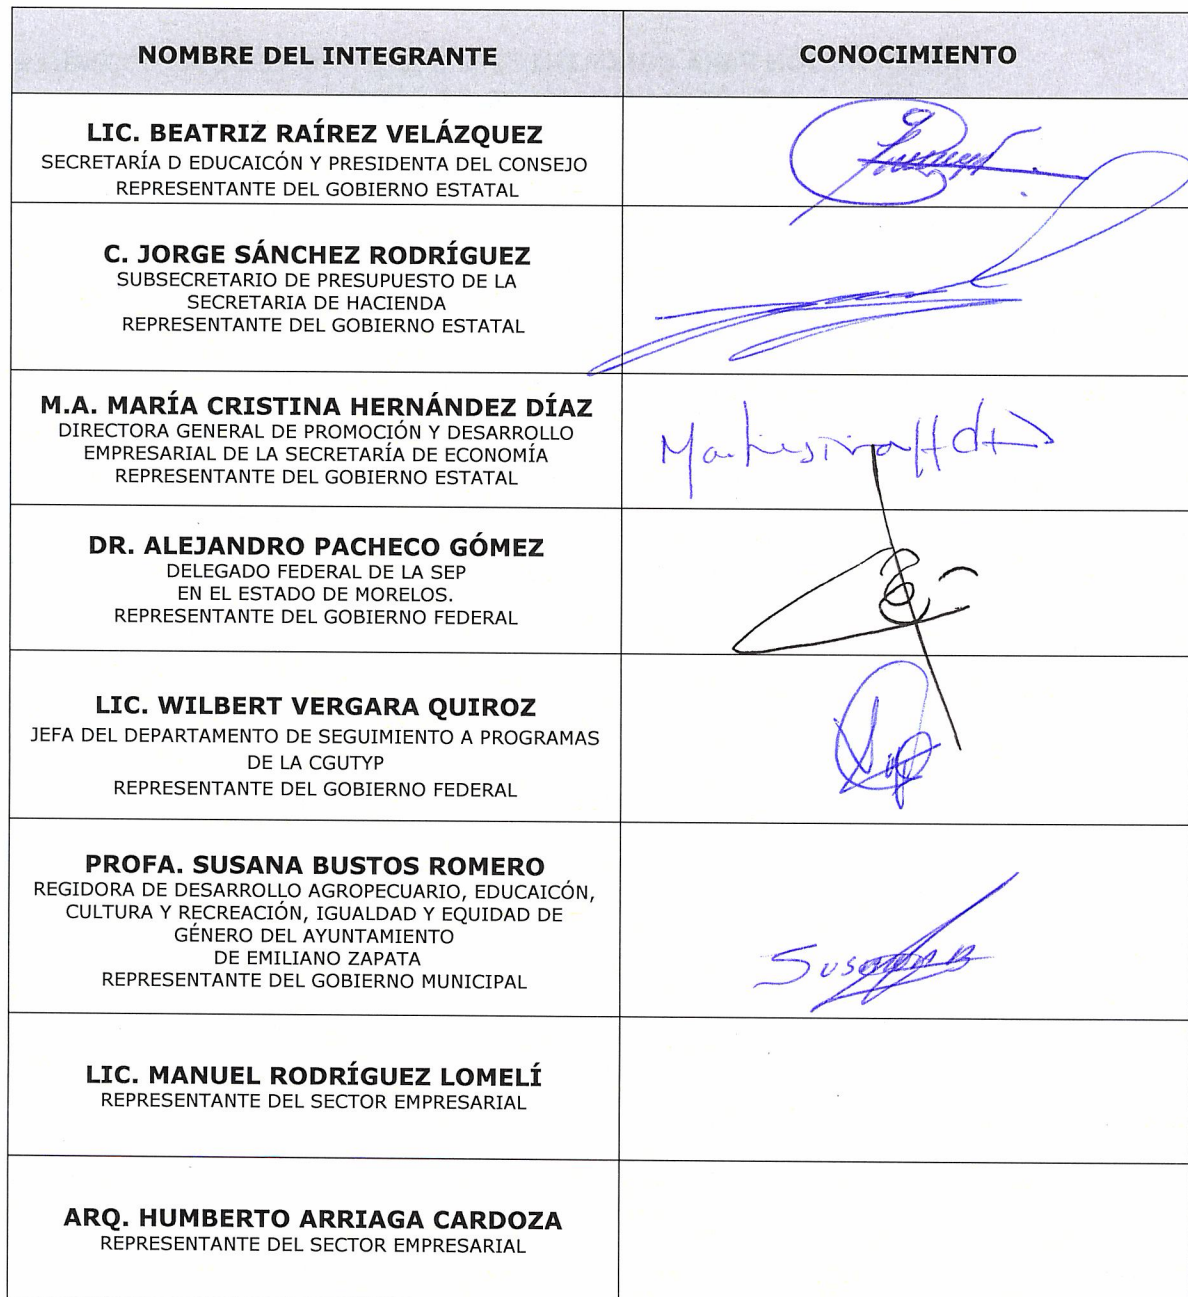 NOMBRE DEL INTEGRANTE CONOCIMIENTO
LIC. BEATRIZ RAÍREZ VELÁZQUEZ
SECRETARÍA D EDUCAICÓN Y PRESIDENTA DEL CONSEJO
REPRESENTANTE DEL GOBIERNO ESTATAL
C. JORGE SÁNCHEZ RODRÍGUEZ
SUBSECRETARIO DE PRESUPUESTO DE LA
SECRETARIA DE HACIENDA
REPRESENTANTE DEL GOBIERNO ESTATAL
M.A. MARÍA CRISTINA HERNÁNDEZ DÍAZ
DIRECTORA GENERAL DE PROMOCIÓN Y DESARROLLO
EMPRESARIAL DE LA SECRETARÍA DE ECONOMÍA
REPRESENTANTE DEL GOBIERNO ESTATAL
DR. ALEJANDRO PACHECO GÓMEZ
DELEGADO FEDERAL DE LA SEP
EN EL ESTADO DE MORELOS.
REPRESENTANTE DEL GOBIERNO FEDERAL
LIC. WILBERT VERGARA QUIROZ
JEFA DEL DEPARTAMENTO DE SEGUIMIENTO A PROGRAMAS
DE LA CGUTYP
REPRESENTANTE DEL GOBIERNO FEDERAL
PROFA. SUSANA BUSTOS ROMERO
REGIDORA DE DESARROLLO AGROPECUARIO, EDUCAICÓN,
CULTURA Y RECREACIÓN, IGUALDAD Y EQUIDAD DE
GÉNERO DEL AYUNTAMIENTO
DE EMILIANO ZAPATA
REPRESENTANTE DEL GOBIERNO MUNICIPAL
LIC. MANUEL RODRÍGUEZ LOMELÍ
REPRESENTANTE DEL SECTOR EMPRESARIAL
ARQ. HUMBERTO ARRIAGA CARDOZA
REPRESENTANTE DEL SECTOR EMPRESARIAL